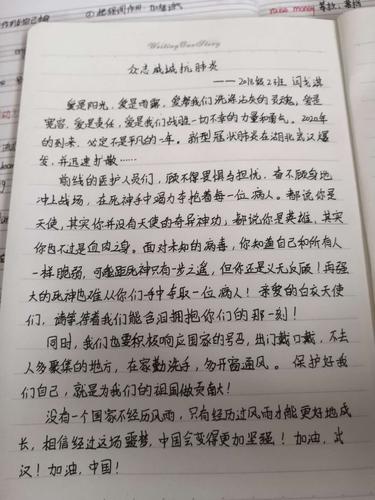 Writing Our Story
众志成城抗肺炎
——2018级2班 闫戈淇
爱是阳光，爱是雨露，爱帮我们洗涤沾灰的灵魂，爱是
宽容，爱是责任，爱是我们战胜一切不幸的力量和勇气。2020年
的到来，必定不是平凡的一年。新型冠状肺炎在湖北武汉爆
发，并迅速扩散……
前线的医护人员们，顾不得畏惧与担忧，奋不顾身地
冲上战场，在死神手中竭力争抢着每一位病人。都说你是
天使，其实你并没有天使的奇异神功；都说你是英雄，其实
你也不过是血肉之身。面对未知的病毒，你知道自己和所有人
一样脆弱，可能距死神只有一步之遥，但你还是义无反顾！再强
大的死神也难从你们手中夺取一位病人！亲爱的白衣天使
们，请等待着我们能含泪拥抱你们的那一刻！
同时，我们也要积极响应国家的号召，出门戴口罩，不去
人多聚集的地方，在家勤洗手，勿开窗通风。保护好我
们自己，就是为我们的祖国做贡献！
没有一个国家不经历风雨，只有经历过风雨才能更好地成
长，相信经过这场噩梦，中国会变得更加坚强！加油，武
汉！加油，中国！
raise money